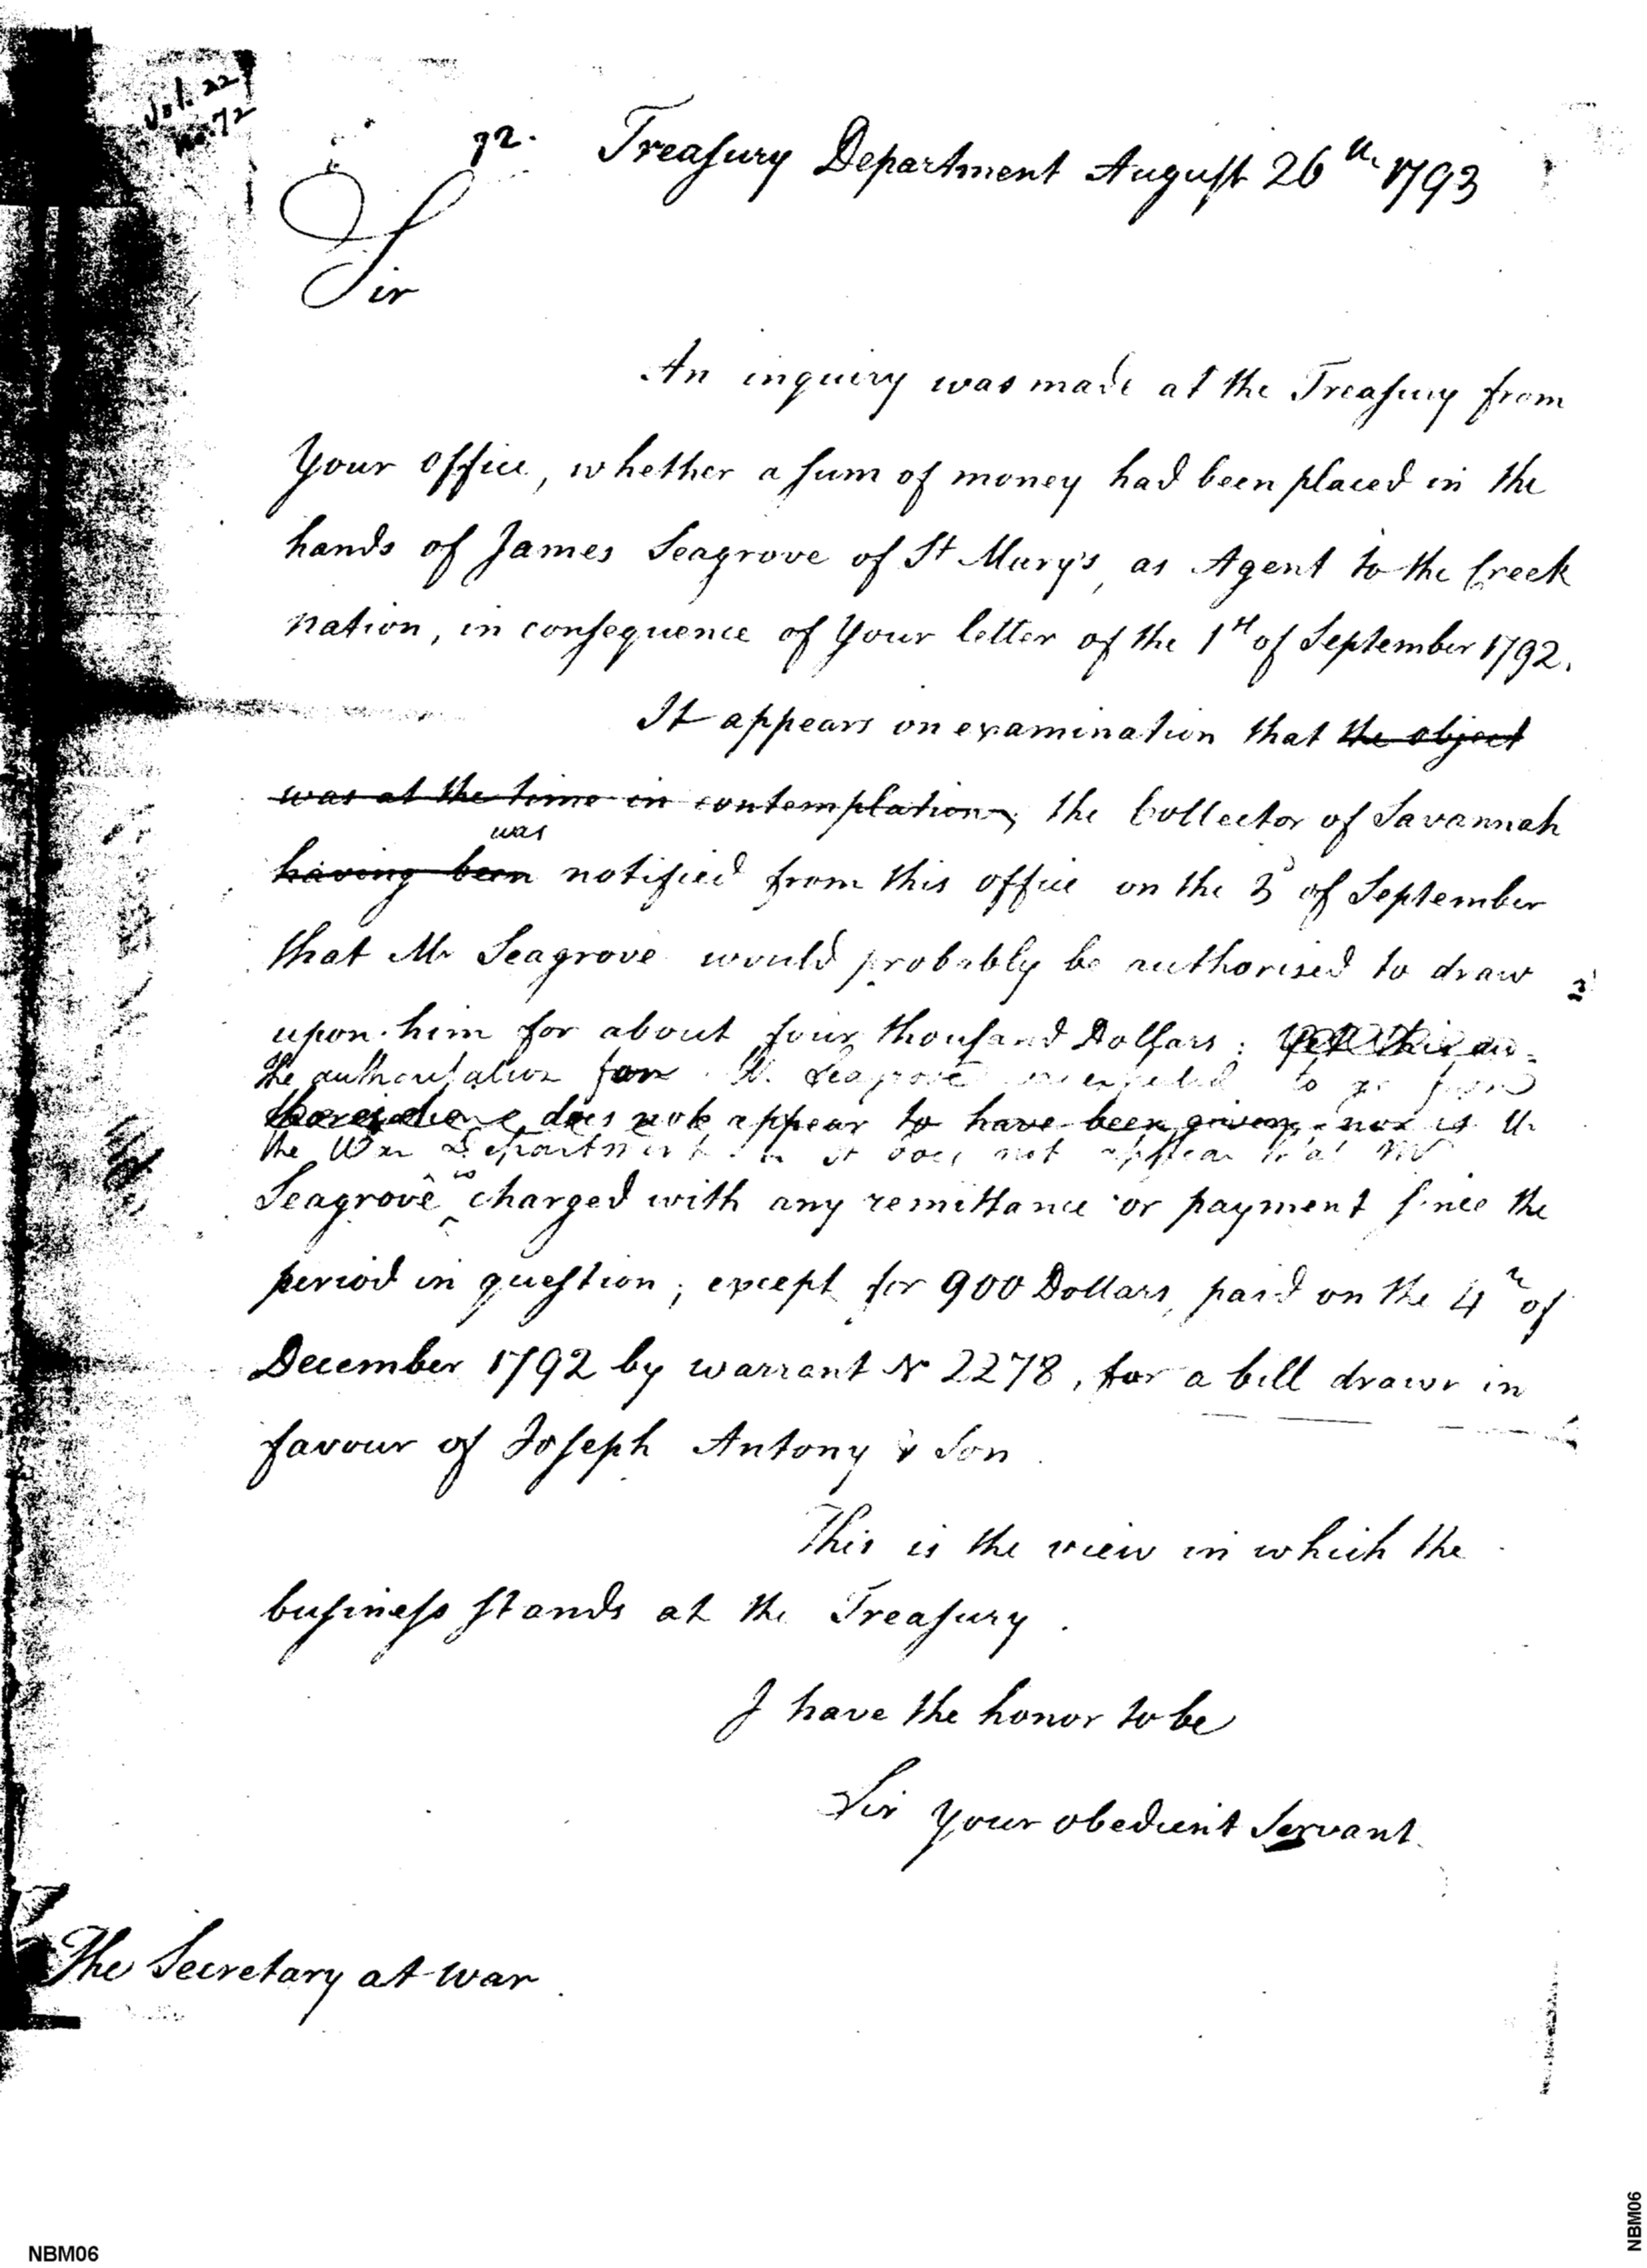 Vol. 22
No. 72
72. Treasury Department August 26th 1793
Sir
An inquiry was made at the Treasury from
Your office, whether a sum of money had been placed in the
hands of James Seagrove of St Mary's, as Agent to the Creek
nation, in consequence of Your letter of the 1st of September 1792.
It appears on examination that the object
was at the time in contemplation, the Collector of Savannah
was
having been notified from this office on the 3d of September
that Mr Seagrove would probably be authorised to draw
upon him for about four thousand Dollars: Yet this au-
the authorisation for Mr Seagrove to go from
does not appear to have been given, nor is
the War Department it does not appear that Mr
is
Seagrove charged with any remittance or payment since the
period in question; except for 900 Dollars, paid on the 4th of
December 1792 by warrant No 2278, for a bill drawn in
favour of Joseph Antony & Son.
This is the view in which the
business stands at the Treasury.
I have the honor to be
Sir Your obedient Servant.
The Secretary at war.
NBM06
NBM06